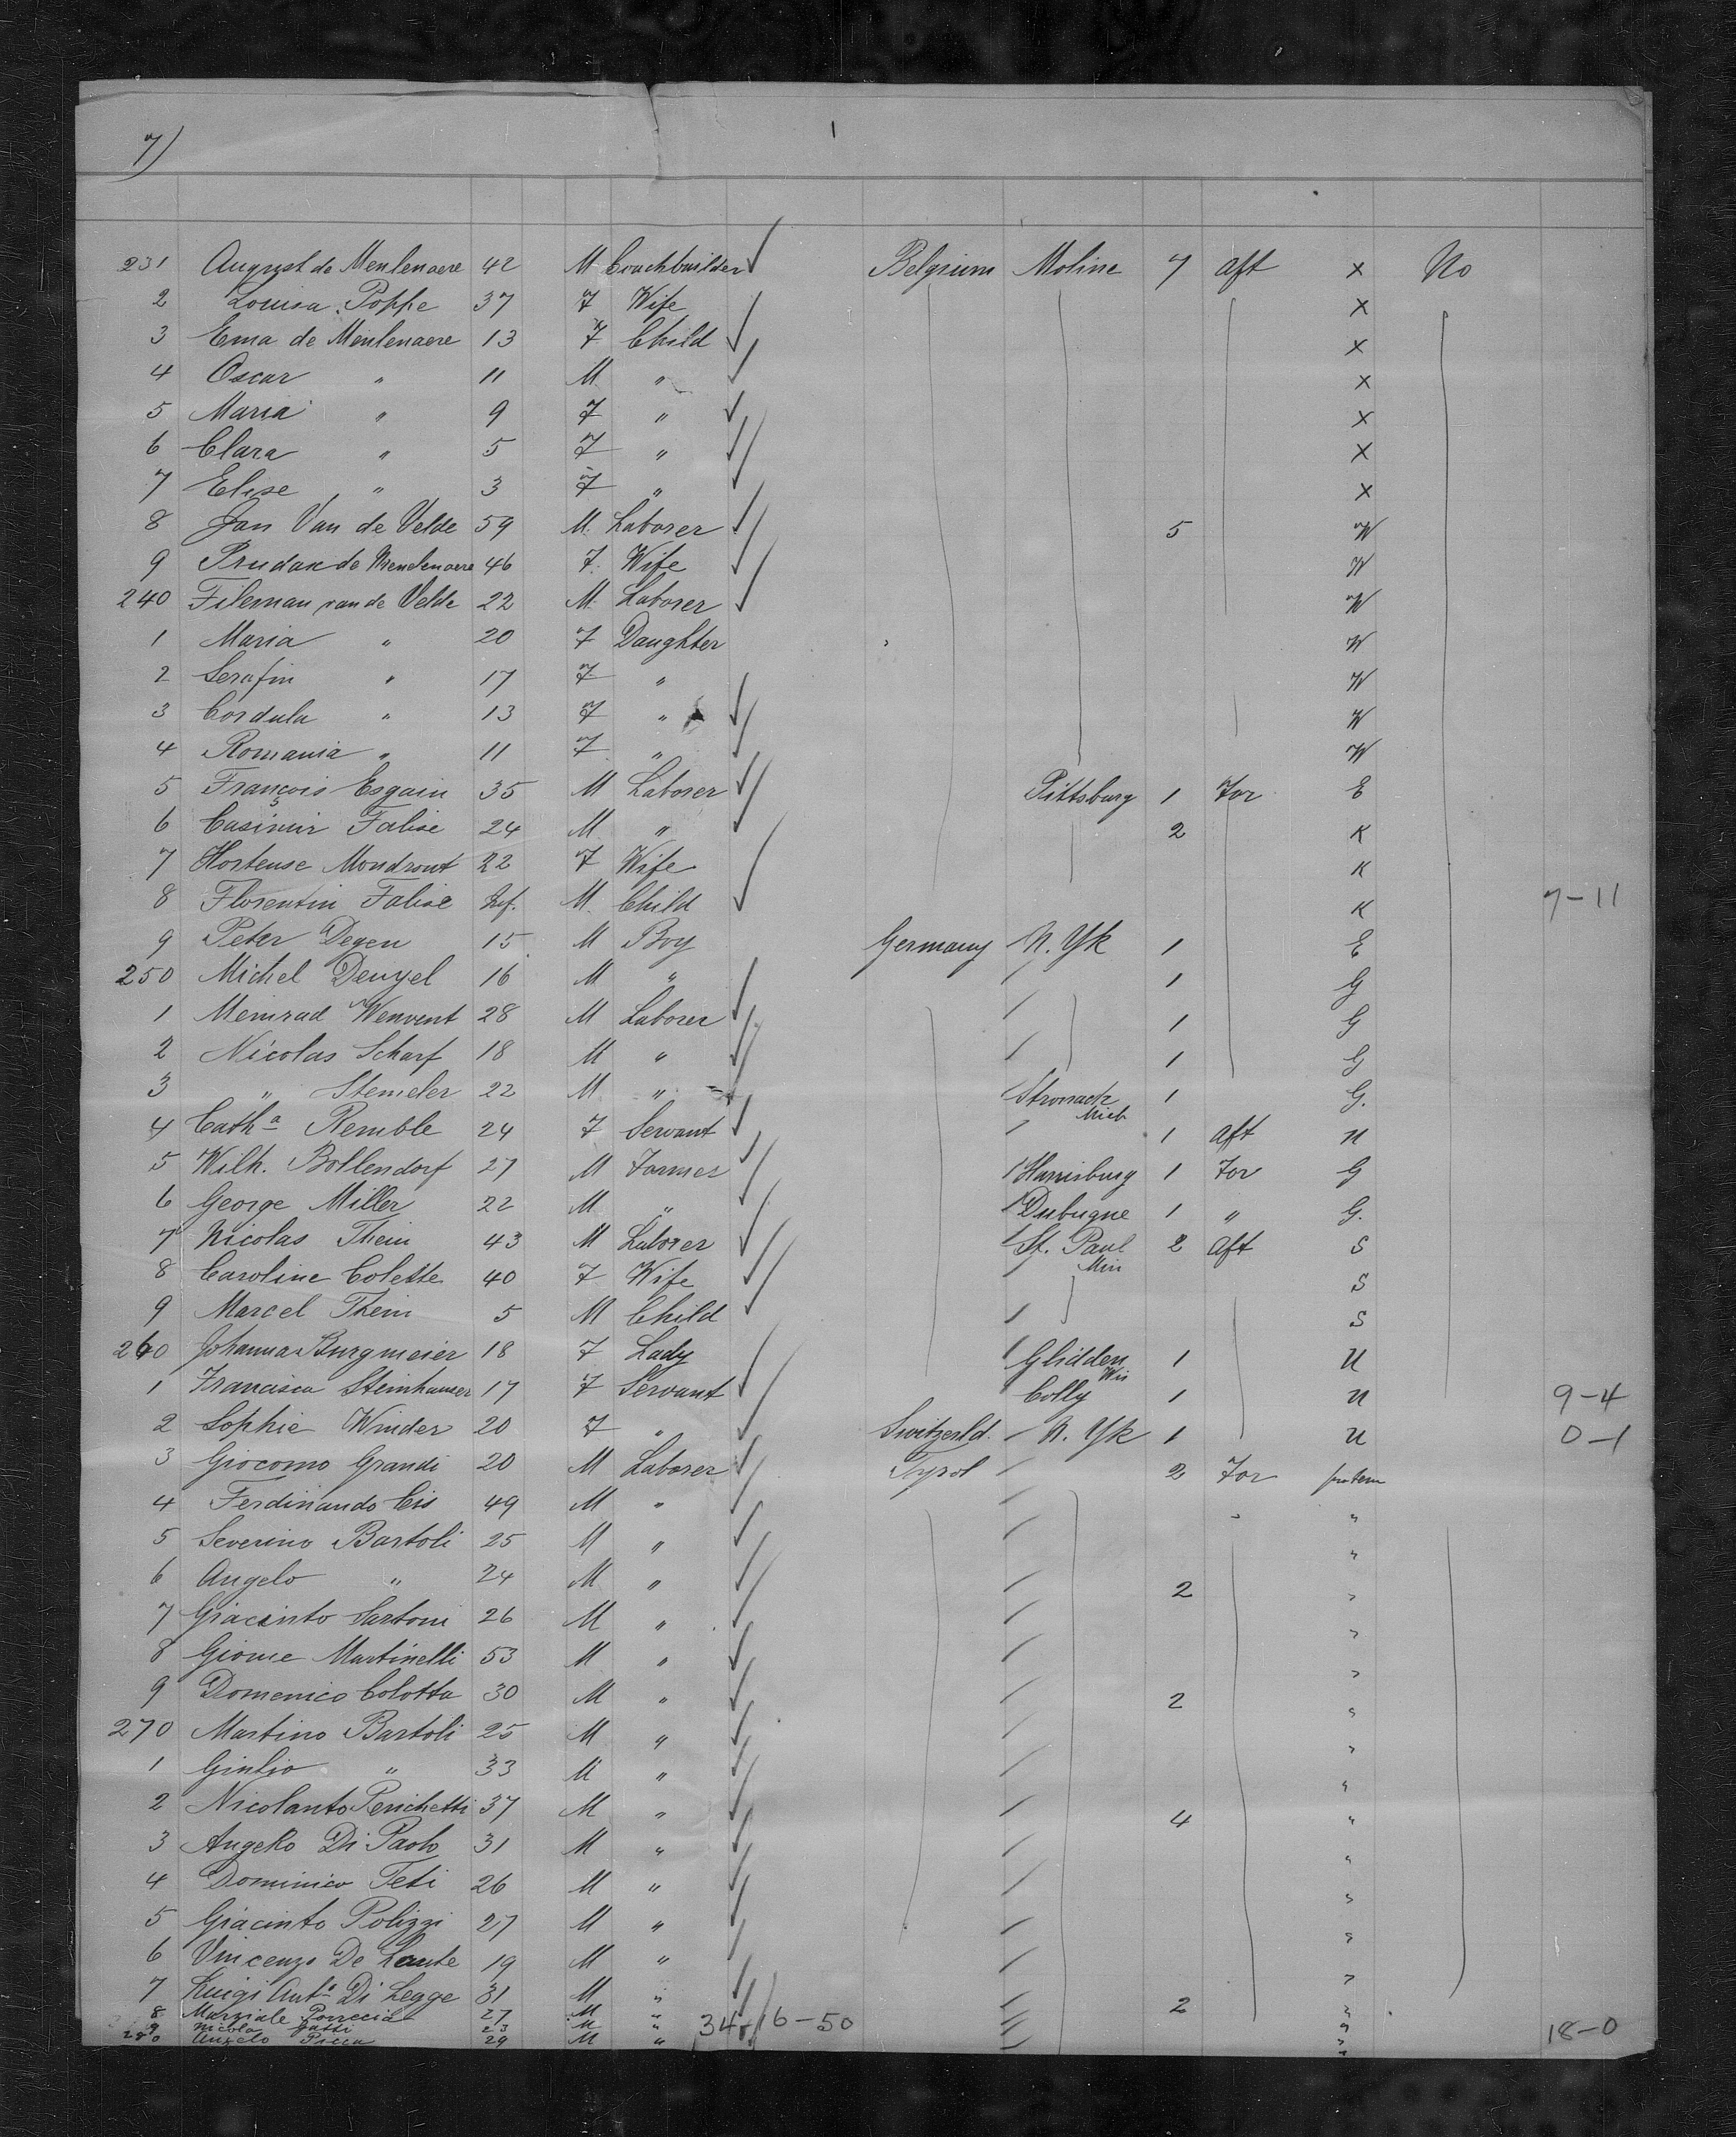 7)
231 August de Menlenaere 42 M Coachbuilder Belgium Moline 7 aft x No
2 Louisa Poppe 37 F Wife x
3 Ema de Menlenaere 13 F Child x
4 Oscar " 11 M " x
5 Maria " 9 F " x
6 Clara " 5 F " x
7 Elise " 3 F " x
8 Jan Van de Velde 59 M. Laborer 5 W
9 de Menlenaere 46 F. Wife W
240 Fileman van de Velde 22 M. Laborer W
1 Maria " 20 F Daughter W
2 Serafin " 17 F " W
3 Cordula " 13 F " W
4 Romania " 11 F " W
5 François Esgain 35 M Laborer Pittsburg 1 For E
6 Casimir Falise 24 M " 2 K
7 Hortense Mondront 22 F Wife K
8 Florentin Falise Inf. M. Child K 7-11
9 Peter Degen 15 M Boy Germany N. Yk 1 E
250 Michel Denzel 16 M " 1 G
1 Meinrad Wenvent 28 M Laborer 1 G
2 Nicolas Scharf 18 M " 1 G
3 " Stemeler 22 M " Stronach Mich 1 G.
4 Catha Remble 24 F Servant 1 aft U
5 Wilh. Bollendorf 27 M Farmer Harrisburg 1 For G
6 George Miller 22 M " Dubuque 1 " G.
7 Nicolas Thein 43 M Laborer St. Paul Min 2 aft S
8 Caroline Colette 40 F Wife S
9 Marcel Thein 5 M Child S
260 Johanna Burgmeier 18 F Lady Glidden Wis 1 U
1 Francisca Steinhauser 17 F Servant Colby 1 U 9-4
2 Sophie Winder 20 F " Switzerld. N. Yk 1 U 0-1
3 Giocomo Grandi 20 M Laborer Tyrol 2 For
4 Ferdinando Cis 49 M " "
5 Severino Bartoli 25 M " "
6 Angelo " 24 M " 2 "
7 Giacinto Sartoni 26 M " "
8 Giome Martinelli 53 M " "
9 Domenico Colotta 30 M " 2 "
270 Martino Bartoli 25 M " "
1 Giulio " 33 M " "
2 Nicolanto Perichetti 37 M " 4 "
3 Angelo Di Paolo 31 M " "
4 Dominico Teti 26 M " "
5 Giacinto Polizzi 27 M " "
6 Vincenzo De Laute 19 M " "
7 Luigi Anto Di Legge 31 M " 2 "
8 Marziale Porreca 27 M " "
9 Nicola Gatti 23 M " 34 16-50 " 18-0
280 Angelo Picca 29 M " "